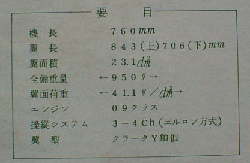 要目
機長 760mm
翼長 843(上)706(下)mm
翼面積 23.1d㎡
全備重量 ←950g→
翼面荷重 ←41.1g/d㎡→
エンジン 09クラス
操縦システム 3-4Ch(エルロン方式)
翼型 クラークY類似